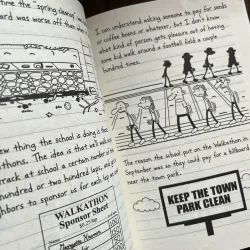 time the "spring cleanup
ard was worse off than
new thing the school is doing is
athons. The idea is that we'll walk
track at school a certain number of
hundred or two hundred laps, and
ghbors to sponsor us for each lap
WALKATHON
Sponsor Sheet
I can understand asking someone to pay for seeds
or coffee beans or whatever, but I don't know
what kind of person gets pleasure out of having
some kid walk around a football field a couple
hundred times.
The reason the school put on the Walkathon in
September was so they could pay for a billboard
near the town park.
KEEP THE TOWN
PARK CLEAN